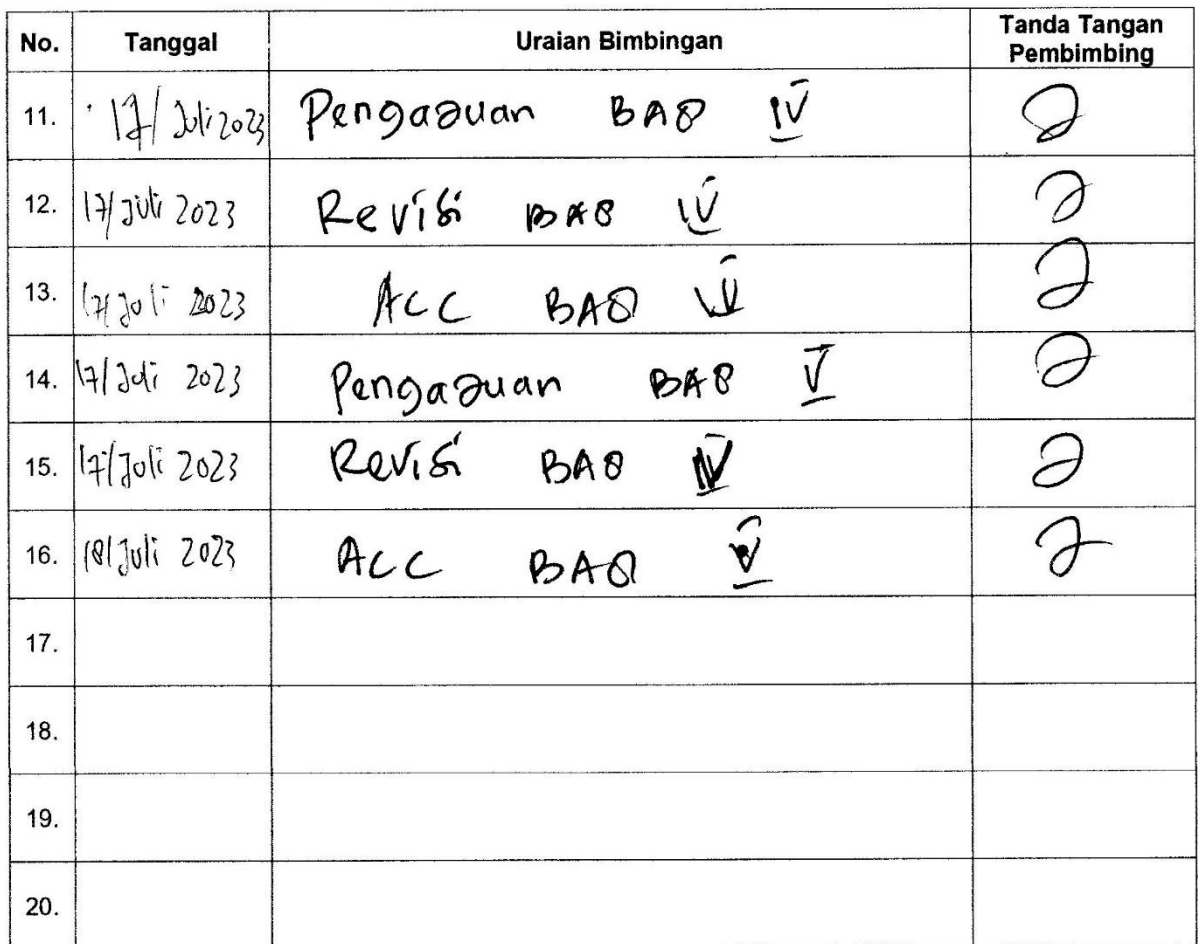 No. Tanggal Uraian Bimbingan Tanda Tangan Pembimbing
11. 17/Juli 2023 Pengajuan BAB IV
12. 17/Juli 2023 Revisi BAB IV
13. 17/Juli 2023 ACC BAB IV
14. 17/Juli 2023 Pengajuan BAB V
15. 17/Juli 2023 Revisi BAB
16. 18/Juli 2023 ACC BAB V
17.
18.
19.
20.